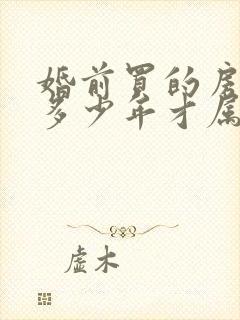 婚前买的房
多少年才属
虚木